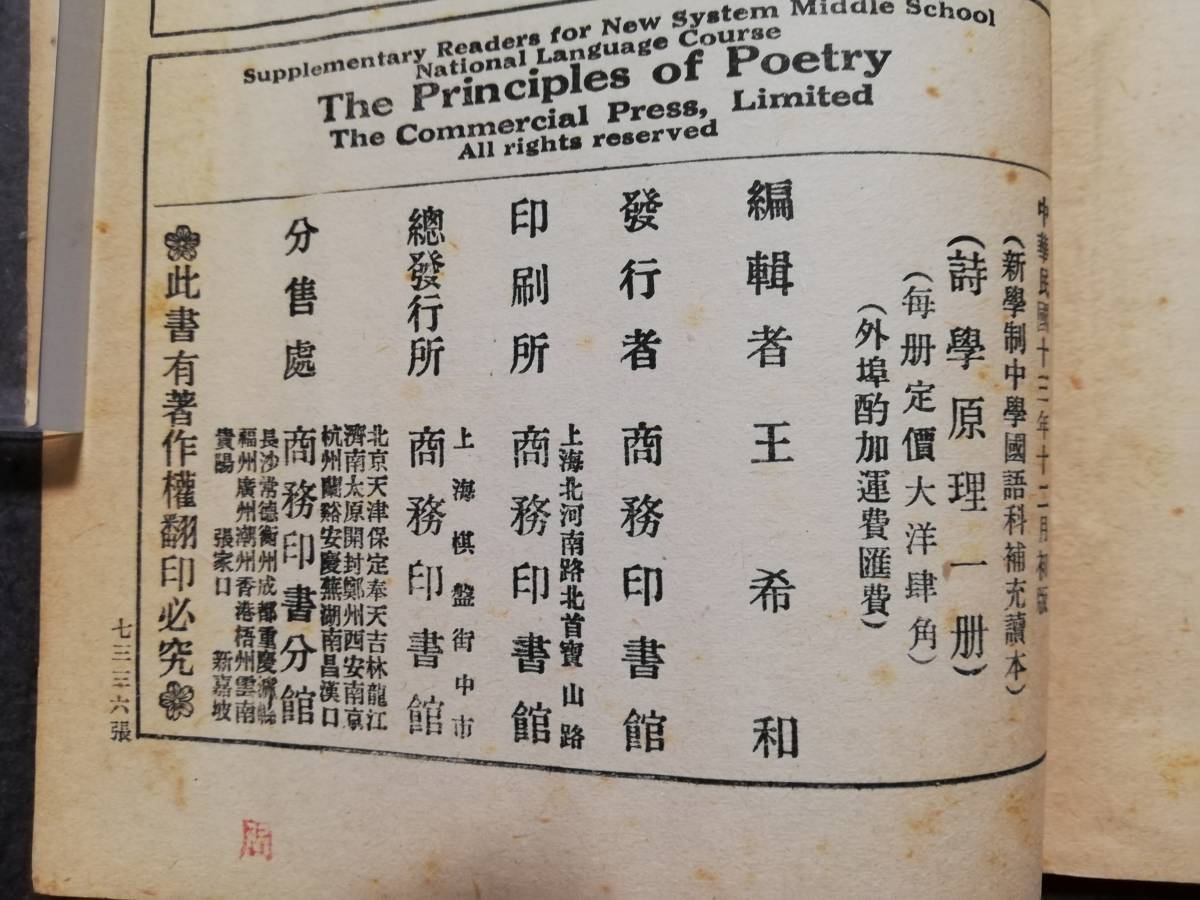 Supplementary Readers for New System Middle School
National Language Course
The Principles of Poetry
The Commercial Press, Limited
All rights reserved
中華民國十三年十二月初版
(新學制中學國語科補充讀本)
(詩學原理一册)
(每册定價大洋肆角)
(外埠酌加運費匯費)
編輯者 王希和
發行者 商務印書館
印刷所 上海北河南路北首寶山路 商務印書館
總發行所 上海棋盤街中市 商務印書館
分售處 商務印書分館
北京天津保定奉天吉林龍江
濟南太原開封鄭州西安南京
杭州蘭谿安慶蕪湖南昌漢口
長沙常德衡州成都重慶瀘縣
福州廣州潮州香港梧州雲南
貴陽 張家口 新嘉坡
此書有著作權翻印必究
七三三六張
周